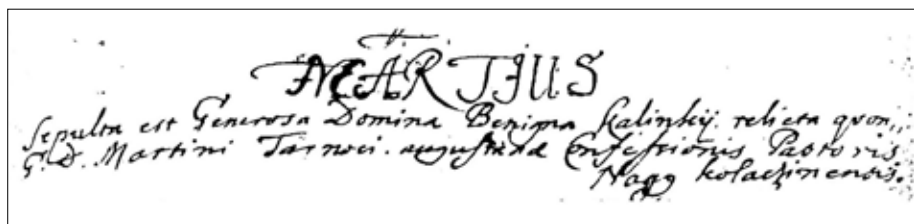 MARTIUS
Sepulta est Generosa Domina Benigna Kalinkij. relicta quon,,
G. D. Martini Tarnoci. augustanae Confessionis Pastoris
Nagy kolaczinensis.